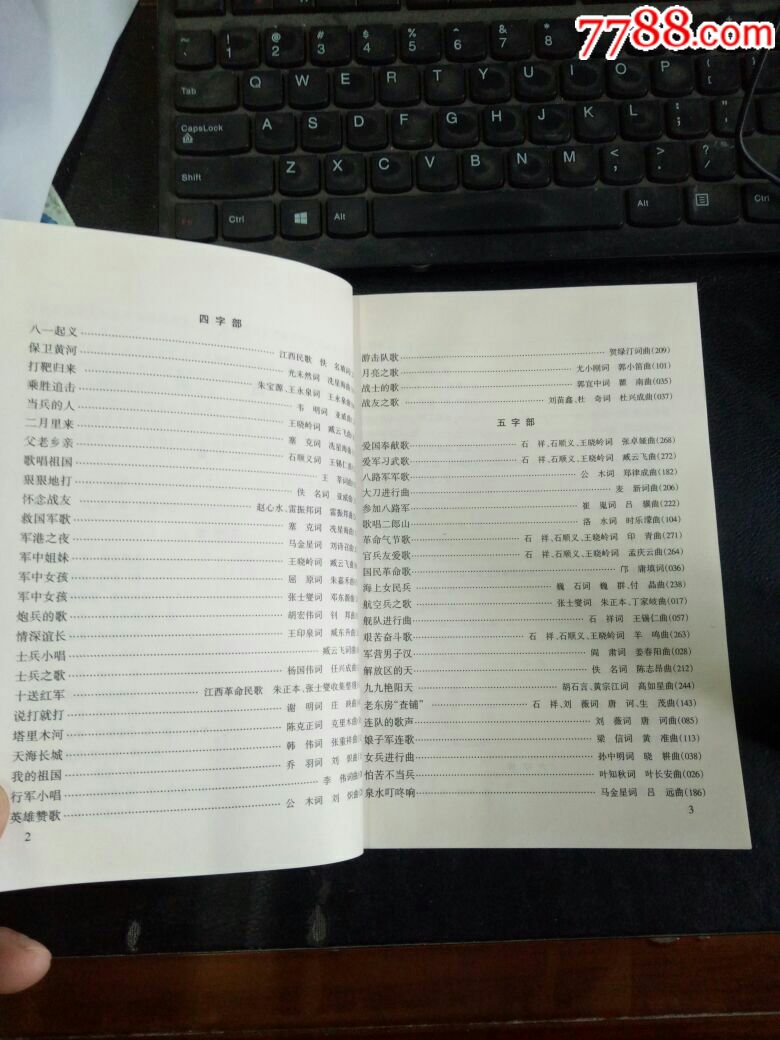 7788.com
~ ! 1 @ 2 # 3 $ 4 % 5 ^ 6 & 7 * 8
Tab Q W E R T Y U I O P
CapsLock A S D F G H J K L
Shift Z X C V B N M < , > . ? /
Fn Ctrl Alt Alt Ctrl
四字部
八一起义 江西民歌 佚 名填词
保卫黄河 光未然词 冼星海曲
打靶归来 朱宝源、王永泉词 王永泉曲
乘胜追击 韦 明词 亚威曲
当兵的人 王晓岭词 臧云飞曲
二月里来 塞 克词 冼星海曲
父老乡亲 石顺义词 王锡仁曲
歌唱祖国 王 莘词曲
狠狠地打 佚 名词 亚威曲
怀念战友 赵心水、雷振邦词 雷振邦曲
救国军歌 塞 克词 冼星海曲
军港之夜 马金星词 刘诗召曲
军中姐妹 王晓岭词 臧云飞曲
军中女孩 屈 原词 朱嘉禾曲
军中女孩 张士燮词 邓东源曲
炮兵的歌 胡宏伟词 钊 邦曲
情深谊长 王印泉词 臧东升曲
士兵小唱 臧云飞词曲
士兵之歌 杨国伟词 任兴成曲
十送红军 江西革命民歌 朱正本、张士燮收集整理
说打就打 谢 明词 庄 映曲
塔里木河 陈克正词 克里木曲
天海长城 韩 伟词 张重祥曲
我的祖国 乔 羽词 刘 炽曲
行军小唱 李 伟词曲
英雄赞歌 公 木词 刘 炽曲
2
游击队歌 贺绿汀词曲(209)
月亮之歌 尤小刚词 郭小笛曲(101)
战士的歌 郭宜中词 瞿 南曲(035)
战友之歌 刘苗鑫、杜 奇词 杜兴成曲(037)
五字部
爱国奉献歌 石 祥、石顺义、王晓岭词 张卓娅曲(268)
爱军习武歌 石 祥、石顺义、王晓岭词 臧云飞曲(272)
八路军军歌 公 木词 郑律成曲(182)
大刀进行曲 麦 新词曲(206)
参加八路军 崔 嵬词 吕 骥曲(222)
歌唱二郎山 洛 水词 时乐濛曲(104)
革命气节歌 石 祥、石顺义、王晓岭词 印 青曲(271)
官兵友爱歌 石 祥、石顺义、王晓岭词 孟庆云曲(264)
国民革命歌 邝 庸填词(036)
海上女民兵 巍 石词 巍 群、付 晶曲(238)
航空兵之歌 张士燮词 朱正本、丁家岐曲(017)
舰队进行曲 石 祥词 王锡仁曲(057)
艰苦奋斗歌 石 祥、石顺义、王晓岭词 羊 鸣曲(263)
军营男子汉 阎 肃词 姜春阳曲(028)
解放区的天 佚 名词 陈志昂曲(212)
九九艳阳天 胡石言、黄宗江词 高如星曲(244)
老东房“查铺” 石 祥、刘 薇词 唐 诃、生 茂曲(143)
连队的歌声 刘 薇词 唐 诃曲(085)
娘子军连歌 梁 信词 黄 准曲(113)
女兵进行曲 孙中明词 晓 耕曲(038)
怕苦不当兵 叶知秋词 叶长安曲(026)
泉水叮咚响 马金星词 吕 远曲(186)
3